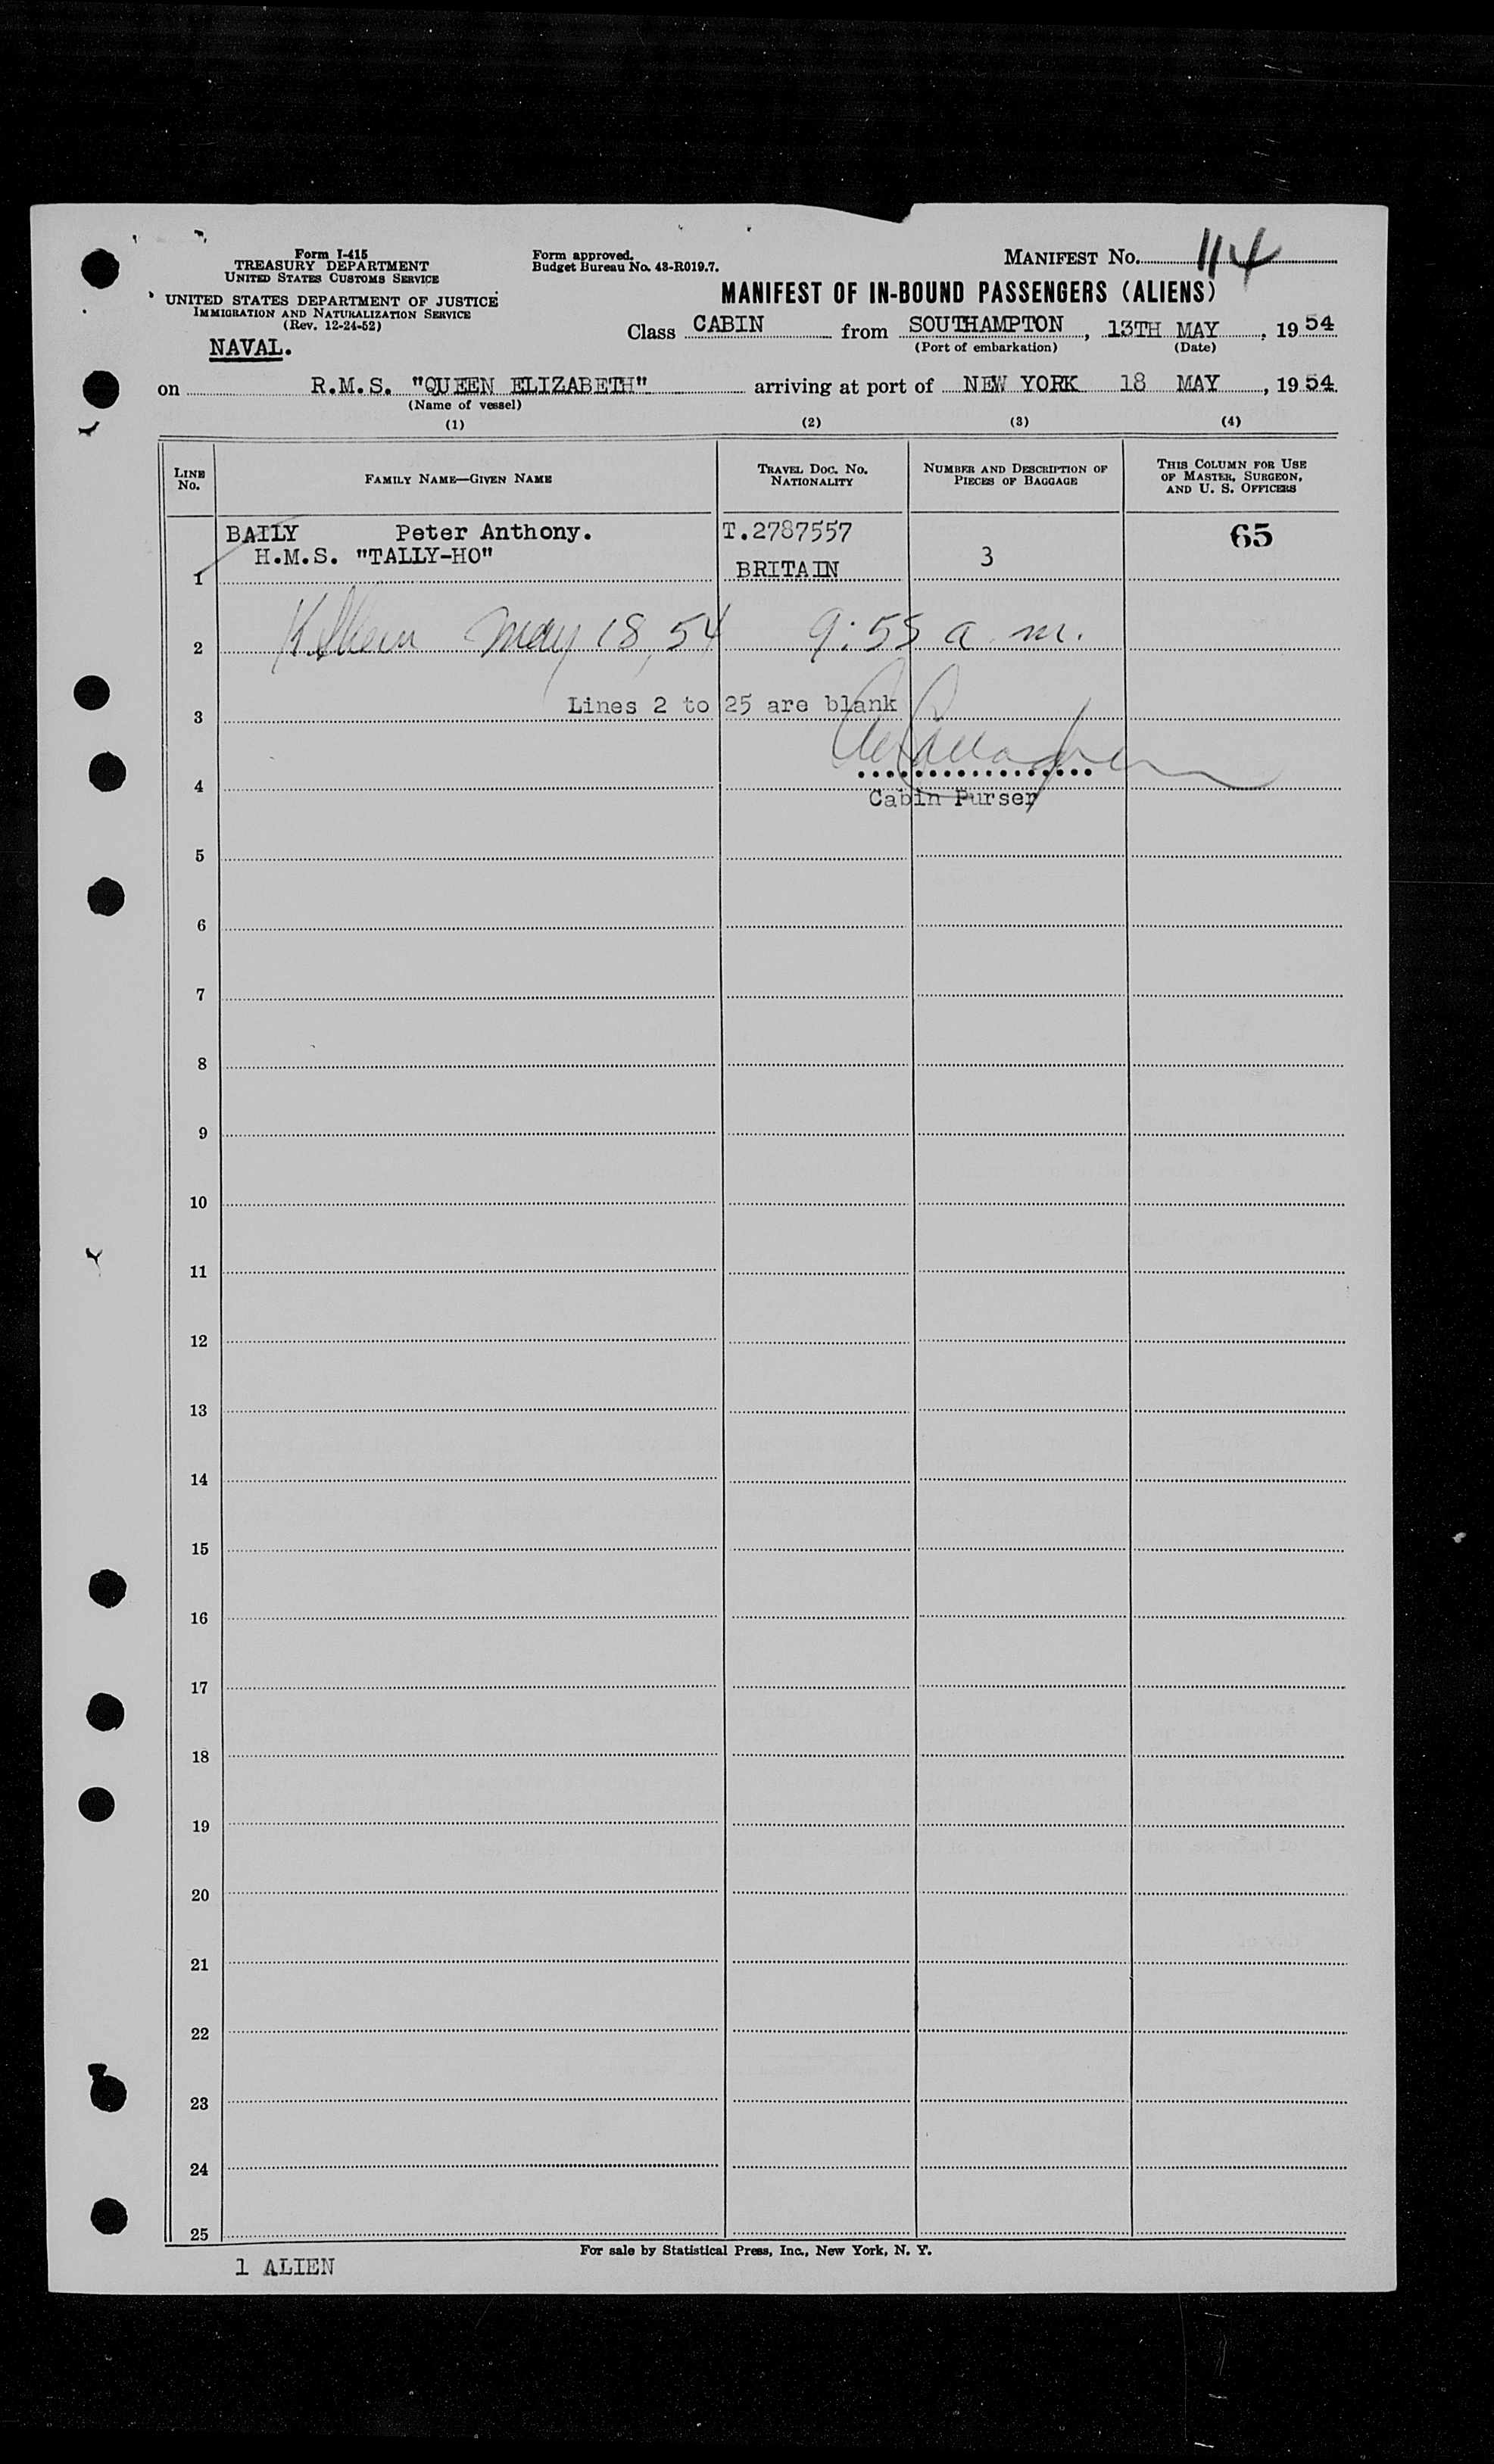 Form I-415
TREASURY DEPARTMENT
UNITED STATES CUSTOMS SERVICE
UNITED STATES DEPARTMENT OF JUSTICE
IMMIGRATION AND NATURALIZATION SERVICE
(Rev. 12-24-52)
NAVAL.
Form approved.
Budget Bureau No. 43-R019.7.
MANIFEST NO. 114
MANIFEST OF IN-BOUND PASSENGERS (ALIENS)
Class CABIN from SOUTHAMPTON, 13TH MAY, 1954
(Port of embarkation) (Date)
on R.M.S. "QUEEN ELIZABETH" arriving at port of NEW YORK 18 MAY, 1954
(Name of vessel)
(1) (2) (3) (4)
LINE NO.
FAMILY NAME—GIVEN NAME
TRAVEL DOC. NO. NATIONALITY
NUMBER AND DESCRIPTION OF PIECES OF BAGGAGE
THIS COLUMN FOR USE OF MASTER, SURGEON, AND U. S. OFFICERS
BAILY Peter Anthony. T.2787557 65
H.M.S. "TALLY-HO"
1 BRITAIN 3
2 May 18, 54 9:55 a.m.
3 Lines 2 to 25 are blank
4 Cabin Purser
5
6
7
8
9
10
11
12
13
14
15
16
17
18
19
20
21
22
23
24
25
For sale by Statistical Press, Inc., New York, N. Y.
1 ALIEN